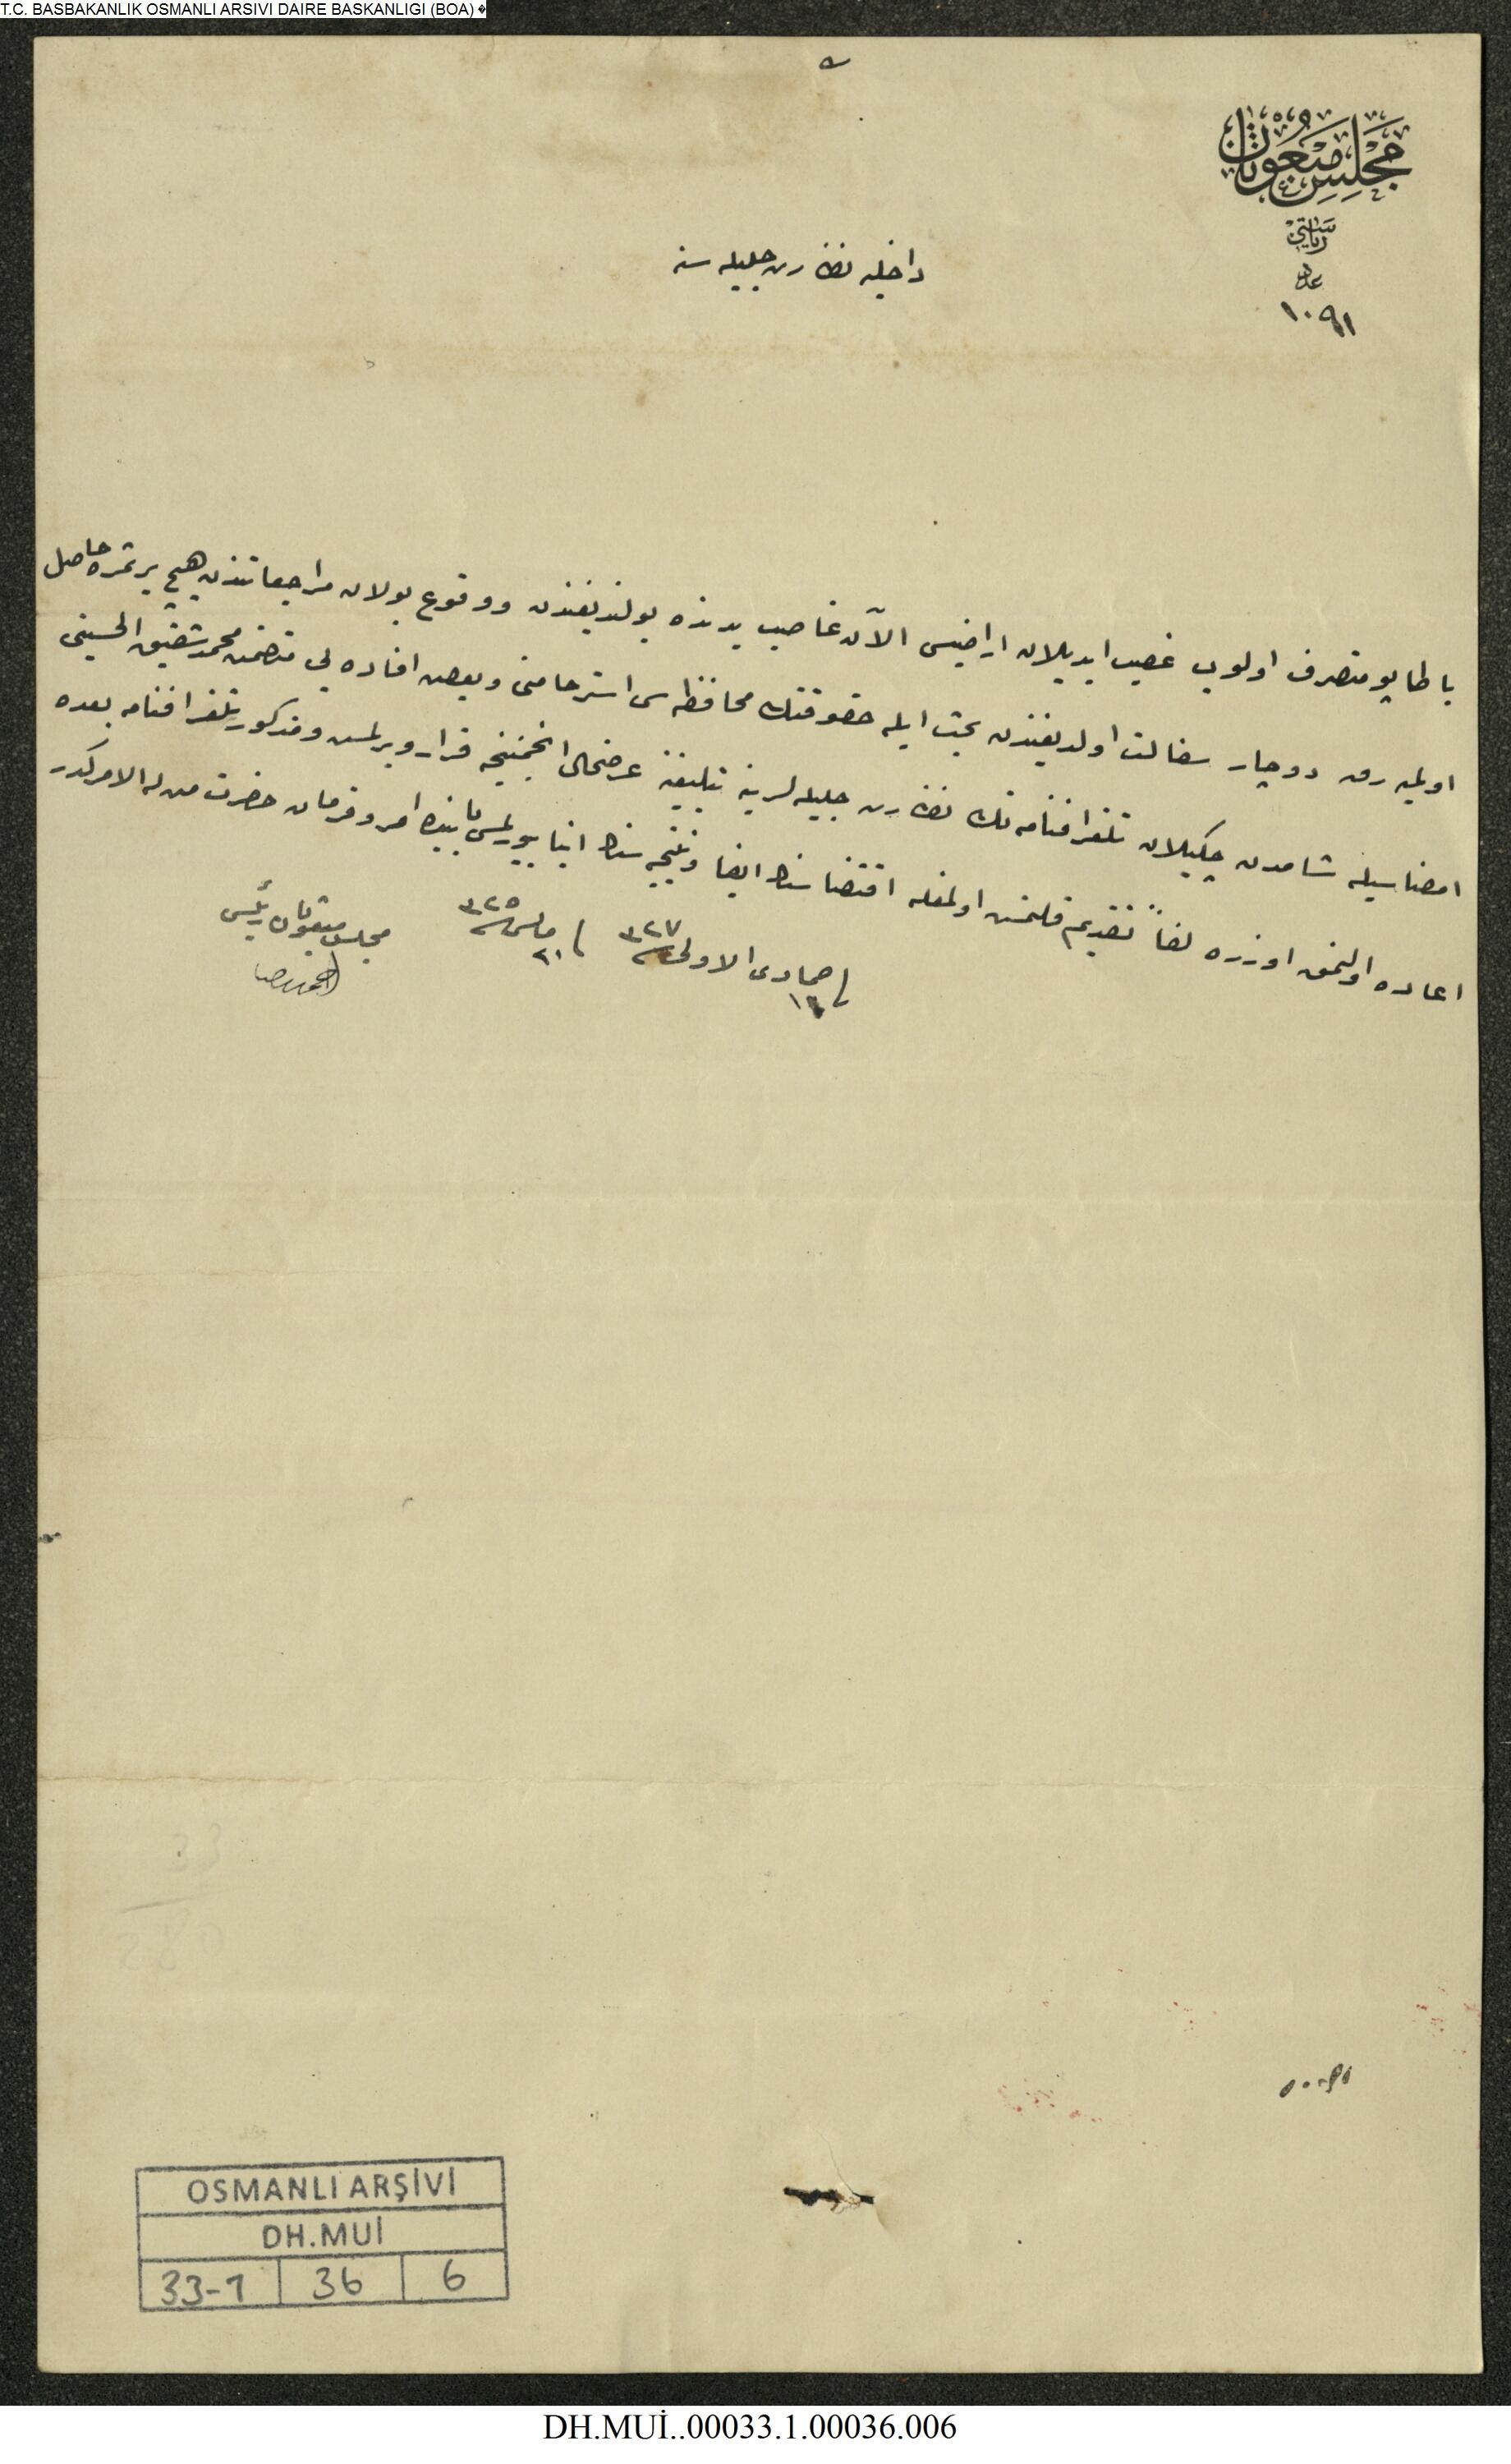 T.C. BASBAKANLIK OSMANLI ARSIVI DAIRE BASKANLIGI (BOA) �
مجلس مبعوثان
رياستى
عدد
١٠٩١
داخليه نظارت جليله سنه
با طاپو متصرف اولوب غصب ايديلان اراضيسى الآن غاصب يدنده بولنديغندن ووقوع بولان مراجعاتندن هيچ بر ثمره حاصل
اوليه رق دوچار سفالت اولديغندن بحث ايله حقوقنك محافظه سى استرحامنى وبعض افاده يى متضمن محمد شفيق الحسينى
امضاسيله شامدن چكيلان تلغرافنامه نك نظارت جليله لرينه تبليغنه عرضحال انجمننجه قرار ويرلمش ومذكور تلغرافنامه بعده
اعاده اولنمق اوزره لفاً تقديم قلنمش اولمغله اقتضاسنك ايفا ونتيجه سنك انبا بيورلمسى بابنده امر وفرمان حضرت من له الامركدر
فى جمادى الاولى ٣٢٧ فى مايس ٣٢٥
٢١
مجلس مبعوثان رئيسى
احمد رضا
١٠٩١
OSMANLI ARŞİVİ
DH.MUİ
33-1 36 6
DH.MUİ..00033.1.00036.006